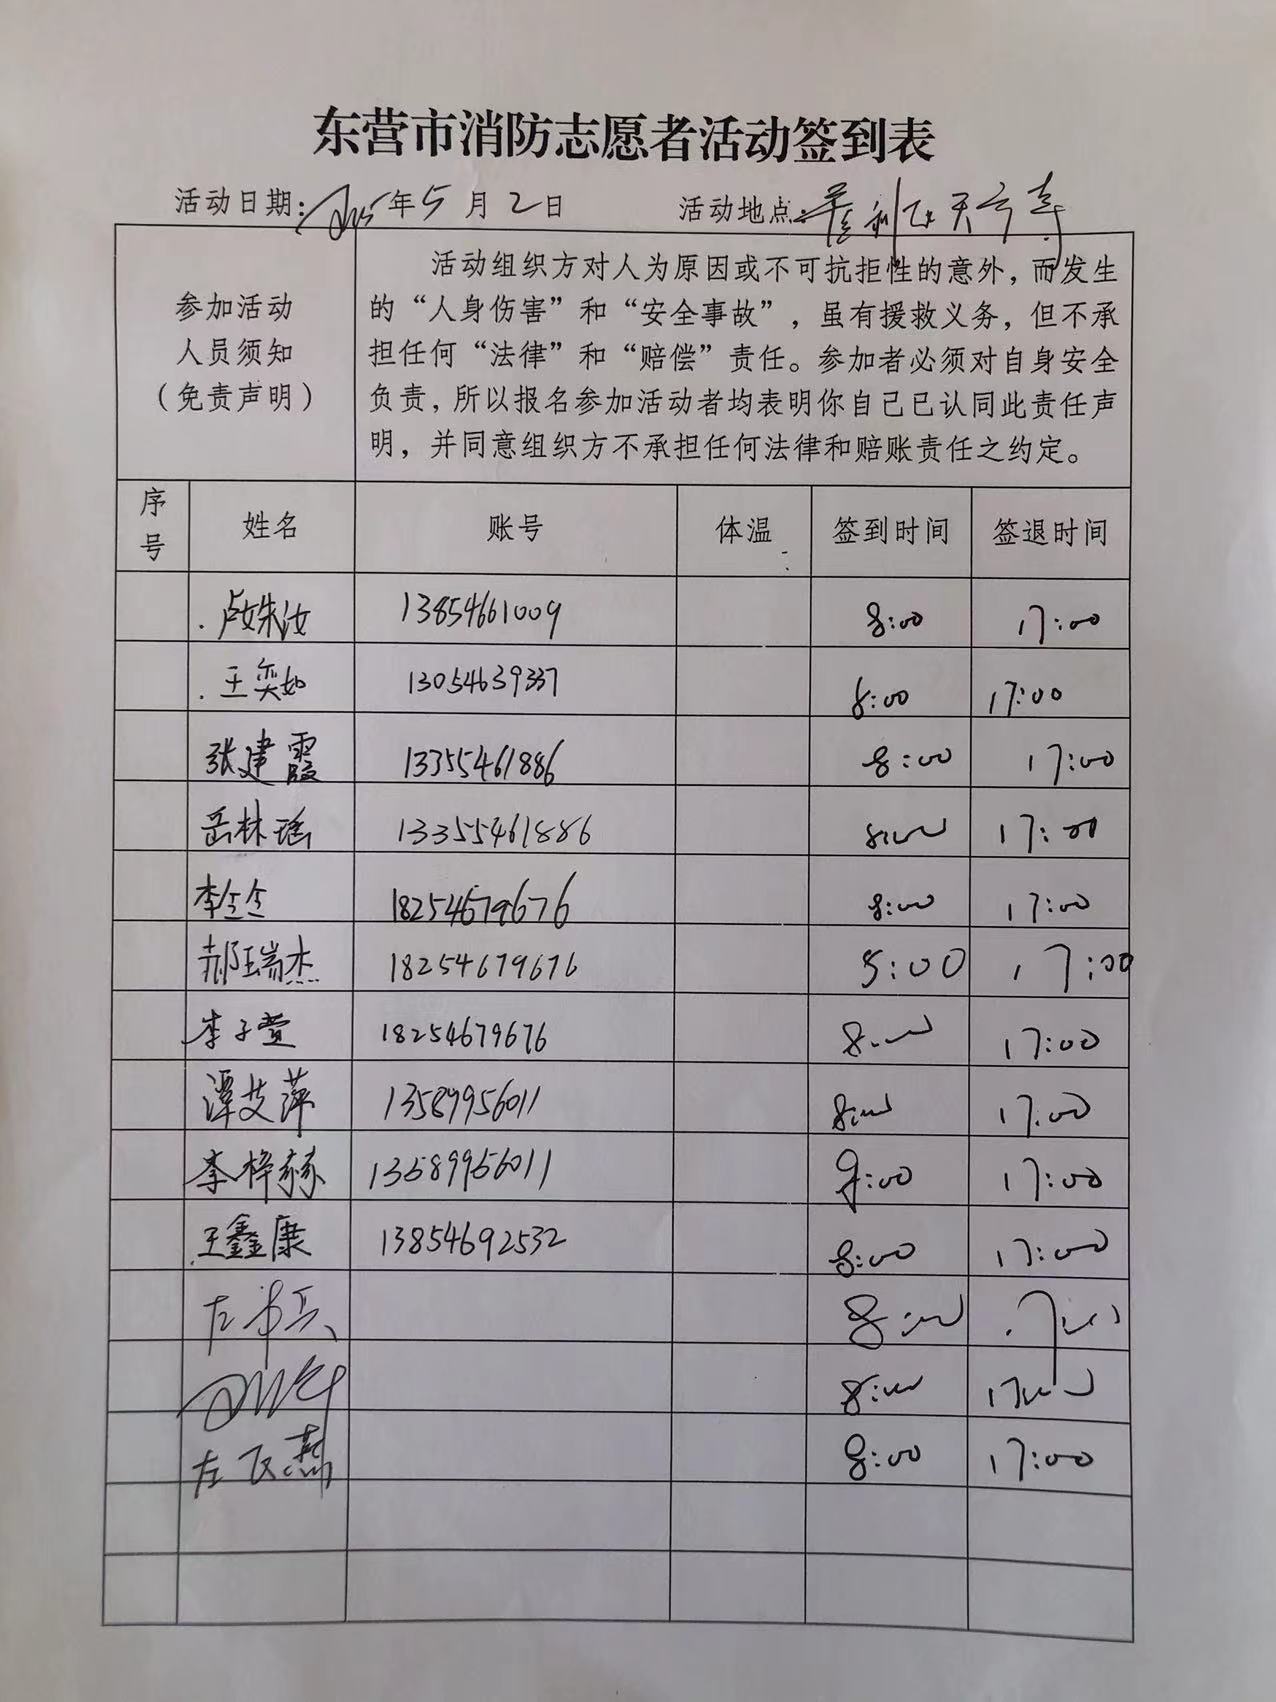 东营市消防志愿者活动签到表
活动日期: 年5月2日 活动地点:
参加活动
人员须知
(免责声明)
活动组织方对人为原因或不可抗拒性的意外,而发生
的“人身伤害”和“安全事故”,虽有援救义务,但不承
担任何“法律”和“赔偿”责任。参加者必须对自身安全
负责,所以报名参加活动者均表明你自己已认同此责任声
明,并同意组织方不承担任何法律和赔账责任之约定。
序号 姓名 账号 体温 签到时间 签退时间
卢姝汝 13854661009 8:00 17:00
王奕如 13054639337 8:00 17:00
张建霞 13355461886 8:00 17:00
岳林瑶 13355461886 8:00 17:00
李 18254679676 8:00 17:00
郝瑞杰 18254679676 8:00 17:00
李子萱 18254679676 8:00 17:00
潭艾萍 13589956011 8:00 17:00
李梓赫 13589956011 8:00 17:00
王鑫康 13854692532 8:00 17:00
左 8:00 17:00
8:00 17:00
左飞燕 8:00 17:00